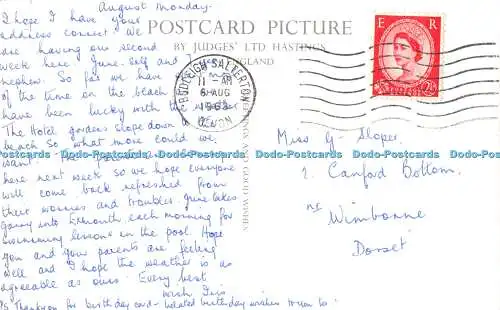 August Monday.
I hope I have your
address correct we
are having our second
week here. June. self and
nephew. So far we have
of the time on the beach
have been lucky with the
The Hotel gardens slope down
beach so what more could we
want
here next week so we hope everyone
will come back refreshed from
their worries and troubles. June takes
going into Exmouth each morning for
swimming lessons in the pool. Hope
you and your parents are feeling
well and I hope the weather is as
agreeable as ours. Every best
wish Iris
PS Thankyou for birthday card - belated birthday wishes to you too.
POSTCARD PICTURE
BY JUDGES' LTD HASTINGS
ENGLAND
BUDLEIGH SALTERTON
11 - AM
6 AUG
1963
DEVON
E R
2½
Miss G. Sloper
2. Canford Bottom.
nr Wimborne
Dorset